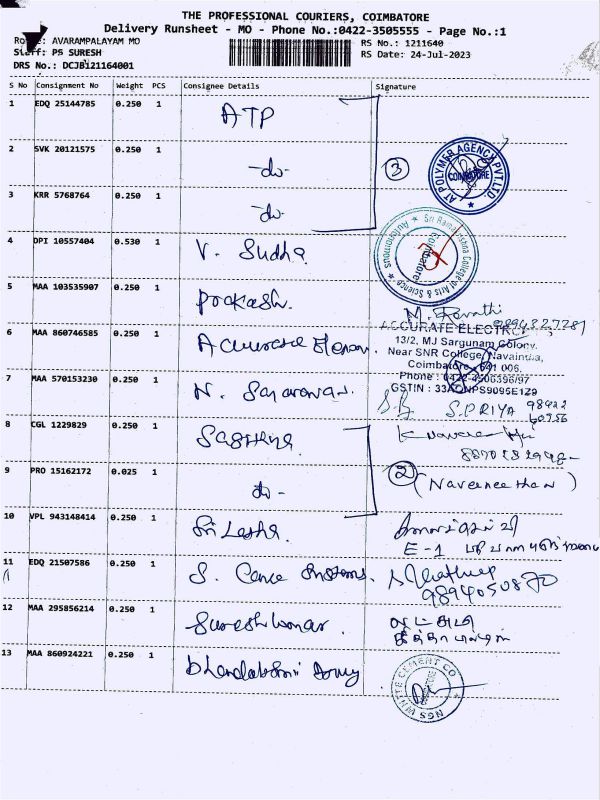 THE PROFESSIONAL COURIERS, COIMBATORE
Delivery Runsheet - MO - Phone No.:0422-3505555 - Page No.:1
AVARAMPALAYAM MO
RS No.: 1211640
Staff: PS SURESH
RS Date: 24-Jul-2023
DRS No.: DCJB121164001
S No Consignment No Weight PCS Consignee Details Signature
1 EDQ 25144785 0.250 1 ATP
2 SVK 20121575 0.250 1 -do-
3
AT POLYMER AGENCY PVT.LTD.
COIMBATORE
3 KRR 5768764 0.250 1 -do-
Sri Ramakrishna College of Arts & Science
Autonomous
Coimbatore
4 DPI 10557404 0.530 1 V. Sudha
5 MAA 103535907 0.250 1 Prakash.
ACCURATE
13/2, MJ Sargunam Colony,
Near SNR College, Navaindia,
6 MAA 860746585 0.250 1
Coimbatore - 641 006.
Phone : 0422-4506396/97
7 MAA 570153230 0.250 1 N. Saravanan.
GSTIN :
S. PRIYA
8 CGL 1229829 0.250 1
9 PRO 15162172 0.025 1 do -
2
(Navaneethan)
10 VPL 943148414 0.250 1 Sri Lesha.
E-1
11 EDQ 21507586 0.250 1
9894050870
12 MAA 295856214 0.250 1 Sureshkumar.
13 MAA 860924221 0.250 1
NGS WHITE CEMENT CO